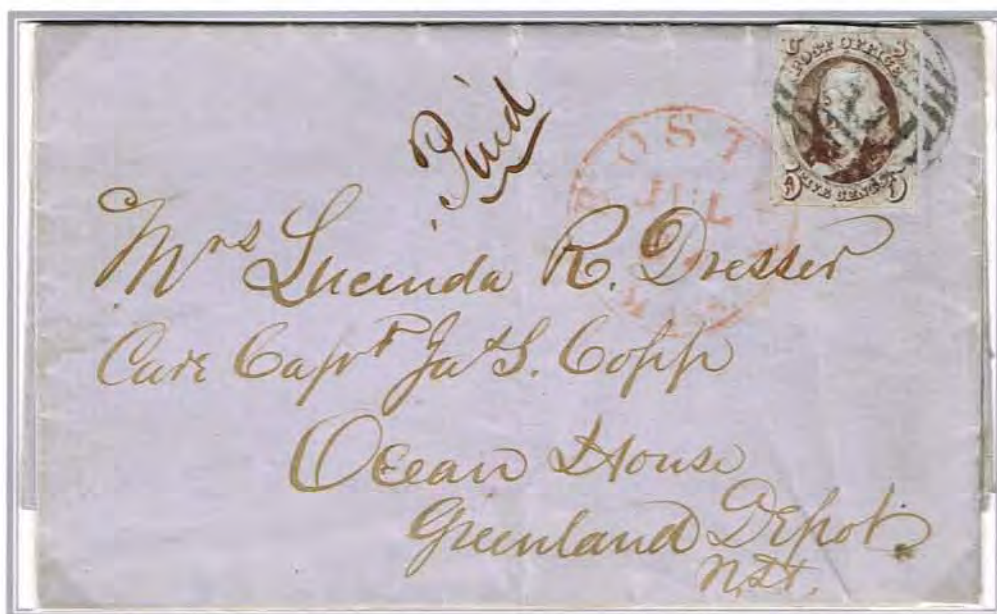 U S
POST OFFICE
FIVE CENTS
5 5
Paid
OST
JUL
Mrs Lucinda R. Dresser
Care Capt Jas S. Copp
Ocean House
Greenland Depot.
N.H.